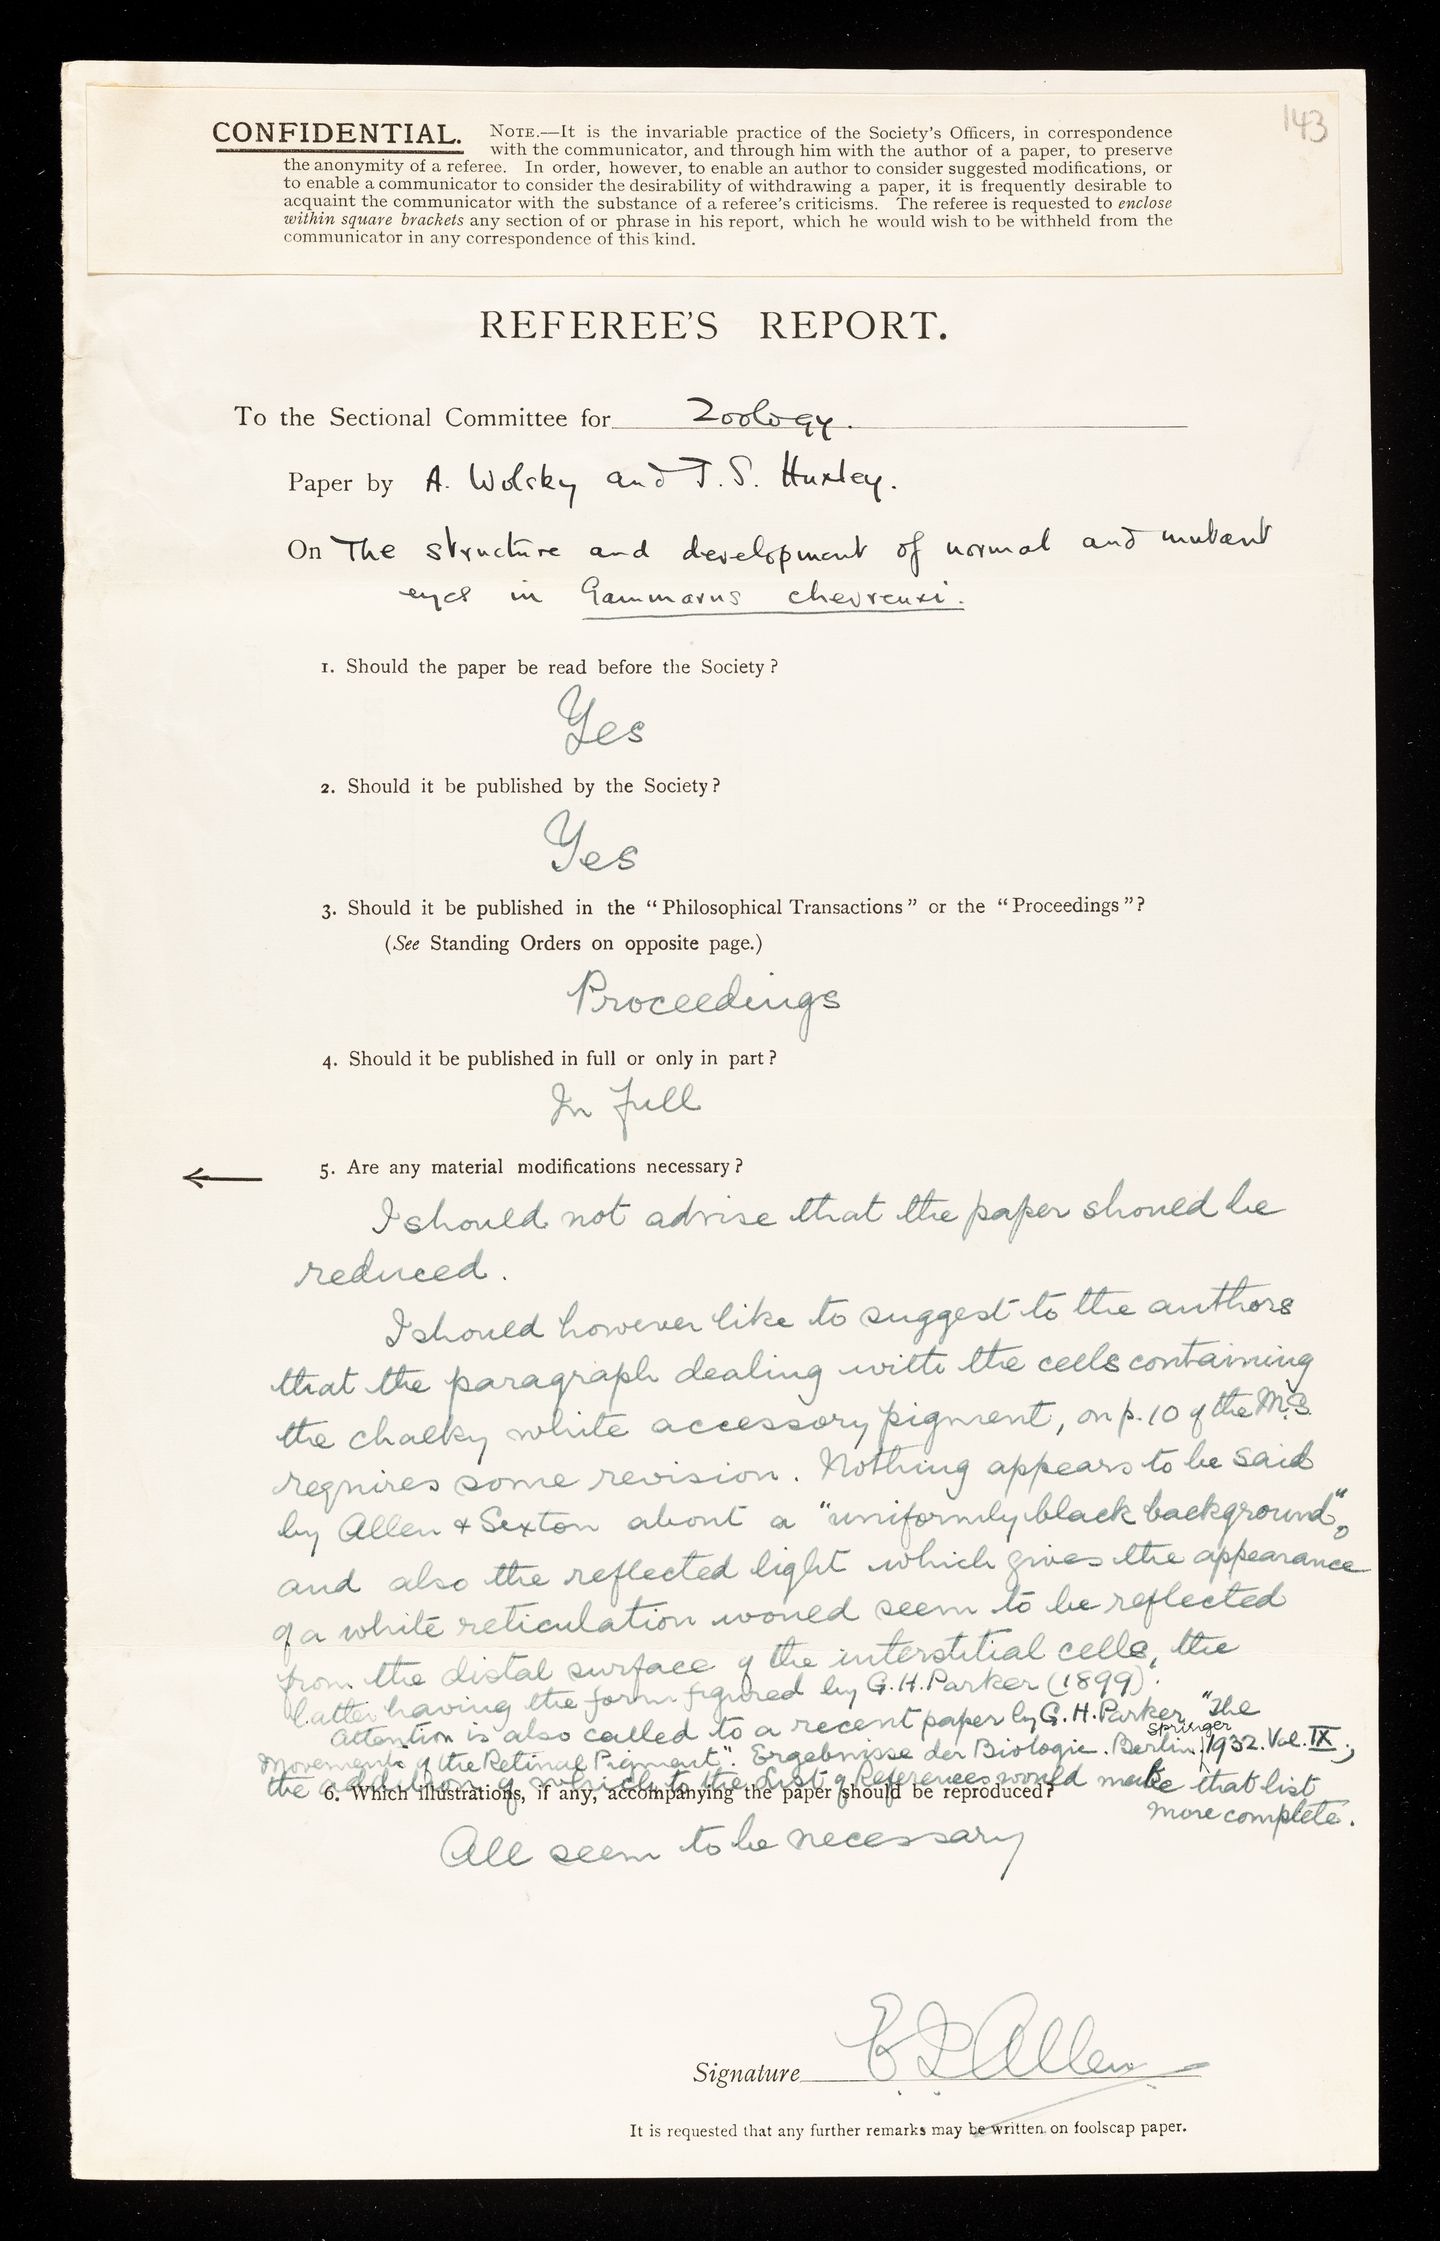 143
CONFIDENTIAL. NOTE.—It is the invariable practice of the Society's Officers, in correspondence
with the communicator, and through him with the author of a paper, to preserve
the anonymity of a referee. In order, however, to enable an author to consider suggested modifications, or
to enable a communicator to consider the desirability of withdrawing a paper, it is frequently desirable to
acquaint the communicator with the substance of a referee's criticisms. The referee is requested to enclose
within square brackets any section of or phrase in his report, which he would wish to be withheld from the
communicator in any correspondence of this kind.
REFEREE'S REPORT.
To the Sectional Committee for Zoology.
Paper by A. Wolsky and J. S. Huxley.
On The structure and development of normal and mutant
eyes in Gammarus chevreuxi.
1. Should the paper be read before the Society?
Yes
2. Should it be published by the Society?
Yes
3. Should it be published in the "Philosophical Transactions" or the "Proceedings"?
(See Standing Orders on opposite page.)
Proceedings
4. Should it be published in full or only in part?
In full
← 5. Are any material modifications necessary?
I should not advise that the paper should be
reduced.
I should however like to suggest to the authors
that the paragraph dealing with the cells containing
the chalky white accessory pigment, on p. 10 of the M.S.
requires some revision. Nothing appears to be said
by Allen & Sexton about a "uniformly black background",
and also the reflected light which gives the appearance
of a white reticulation would seem to be reflected
from the distal surface of the interstitial cells, the
latter having the form figured by G. H. Parker (1899).
Attention is also called to a recent paper by G. H. Parker, "The
Movements of the Retinal Pigment". Ergebnisse der Biologie. Berlin, Springer 1932. Vol. IX.,
the addition of which to the List of References would make that list
more complete.
6. Which illustrations, if any, accompanying the paper should be reproduced?
All seem to be necessary
Signature E J Allen
It is requested that any further remarks may be written on foolscap paper.